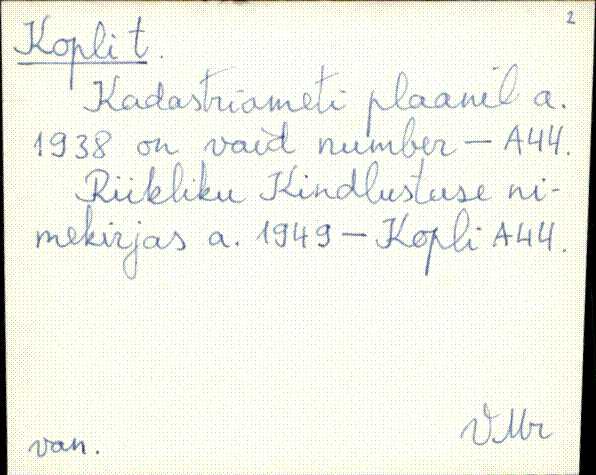 2
Kopli t.
Kadastriameti plaanil a.
1938 on vaid number – A44.
Riikliku Kindlustuse ni-
mekirjas a. 1949 – Kopli A44.
VMr
van.